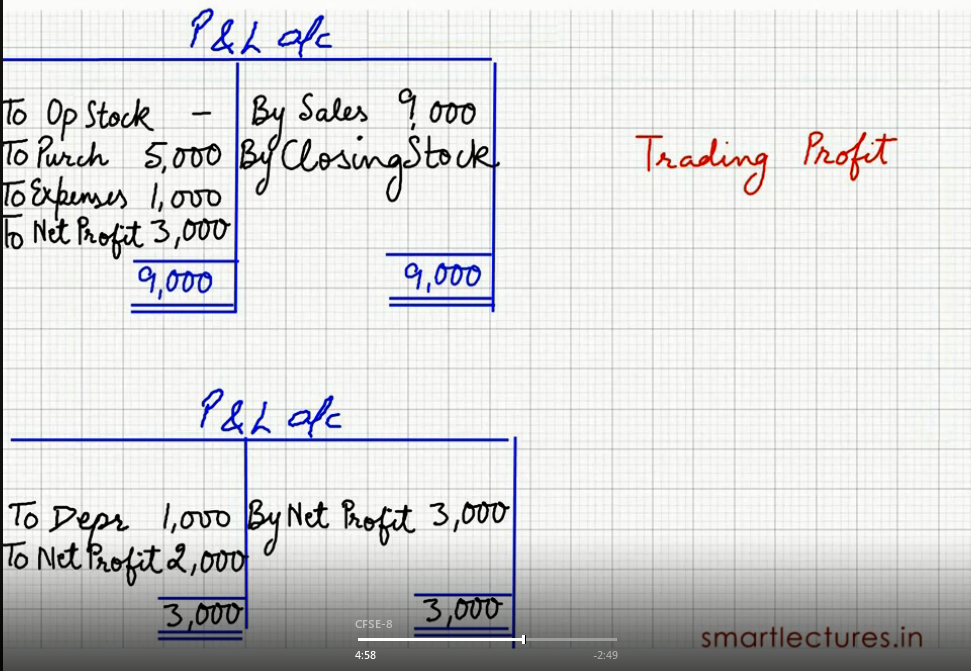 P & L a/c
To Op Stock – By Sales 9,000
To Purch 5,000 By Closing Stock
To Expenses 1,000
To Net Profit 3,000
9,000 9,000
Trading Profit
P & L a/c
To Depr 1,000 By Net Profit 3,000
To Net Profit 2,000
3,000 3,000
CFSE-8
4:58 -2:49
smartlectures.in